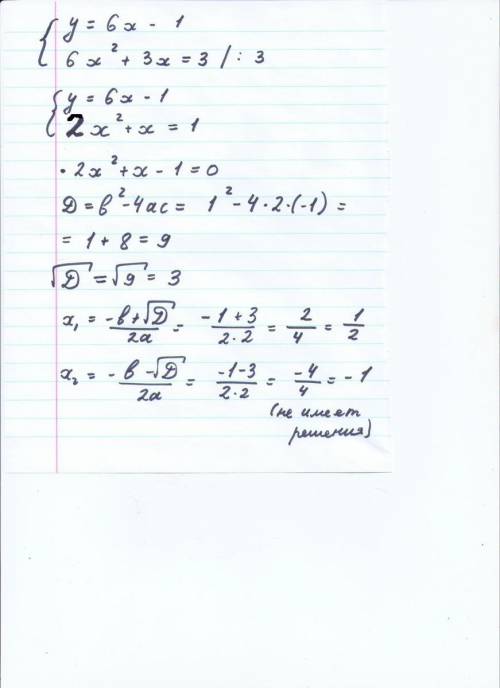 { y = 6x - 1
6x² + 3x = 3 / : 3
{ y = 6x - 1
2x² + x = 1
• 2x² + x - 1 = 0
D = b² - 4ac = 1² - 4 · 2 · (-1) =
= 1 + 8 = 9
√D = √9 = 3
x₁ = -b + √D / 2a = -1 + 3 / 2 · 2 = 2 / 4 = 1 / 2
x₂ = -b - √D / 2a = -1 - 3 / 2 · 2 = -4 / 4 = -1
(не имеет
решения)